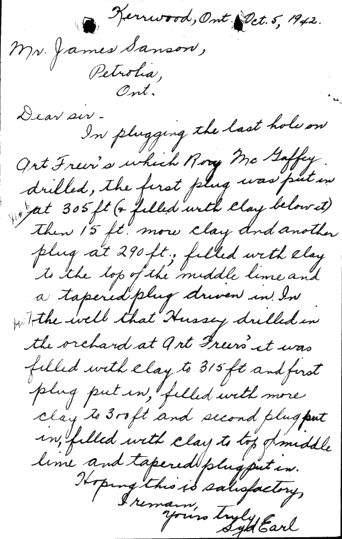 Kerrwood, Ont. Oct. 5, 1942.
Mr. James Sanson,
Petrolia,
Ont.
Dear sir -
In plugging the last hole on
Art Freer's which Rory Mc Gaffey
drilled, the first plug was put in
at 305 ft (& filled with clay below it)
then 15 ft. more clay and another
plug at 290 ft., filled with clay
to the top of the middle lime and
a tapered plug driven in. In
the well that Hussey drilled in
the orchard at Art Freers' it was
filled with clay to 315 ft and first
plug put in, filled with more
clay to 300 ft and second plug put
in, filled with clay to top of middle
lime and tapered plug put in.
Hoping this is satisfactory,
I remain,
Yours truly
Syd Earl